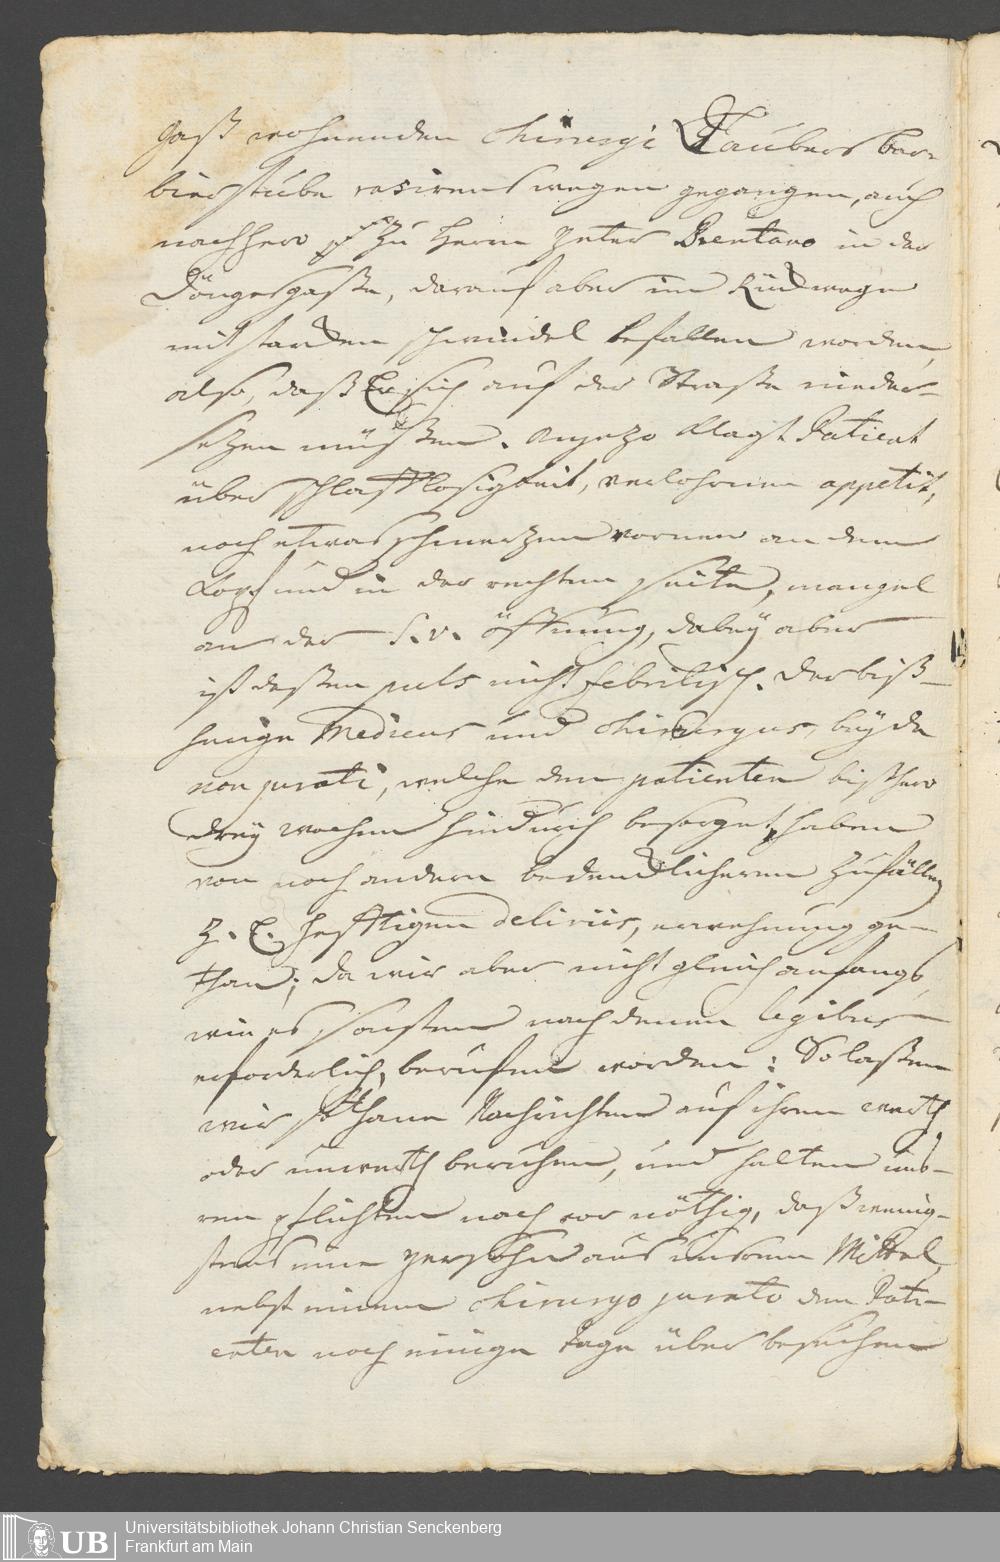 gaß wohnenden Chirurgi Taubers bar-
bierstube rasirens wegen gegangen, auch
nachhero zu Herrn Peter Brentano in der
Döngesgaße, darauf aber im Rückwege
mit starcken schwindel befallen worden,
also, daß Er sich auf der Straße nieder-
setzen müßen. Anjezo klagt Patient
über schlafflosigkeit, verlohrnen appetit,
noch etwas schmerzen vornen an dem
Kopf und in der rechten seite, mangel
an der S. v. öffnung, dabey aber
ist deßen puls nicht febrilisch. Der biß-
herige Medicus und Chirurgus, beyde
non jurati, welche den patienten bißhero
drey wochen hindurch besorget, haben
von noch andern bedencklicheren Zufällen
z. E. hefftigen deliriis, erwehnung ge-
than; da wir aber nicht gleich anfangs,
wie es sonsten nach denen legibus
erforderlich, beruffen worden: So laßen
wir sothane Nachrichten auf ihrem werth
oder unwerth beruhen, und halten uns-
ren pflichten nach vor nöthig, daß wenig-
stens eine persohn aus unserm Mittel,
nebst einem Chirurgo jurato den Pati-
enten noch einige Tage über besuchen
Universitätsbibliothek Johann Christian Senckenberg
UB Frankfurt am Main